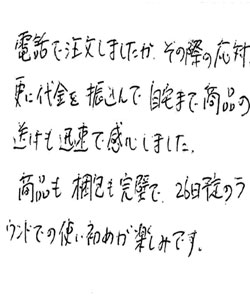 電話で注文しましたが、その際の応対、
更に代金を振込んで自宅まで商品の
送付も迅速で感心しました。
商品も梱包も完璧で、26日予定のラ
ウンドでの使い初めが楽しみです。